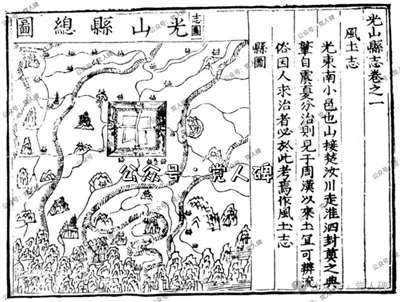 光山縣志卷之一
風土志
光東南小邑也山接楚汝川走淮泗封奠之典
自夏分治則見于周漢以來土宜可辨流
俗因人求治者必於此考焉作風土志
縣圖
志圖
光山縣總圖
公众号 党人碑